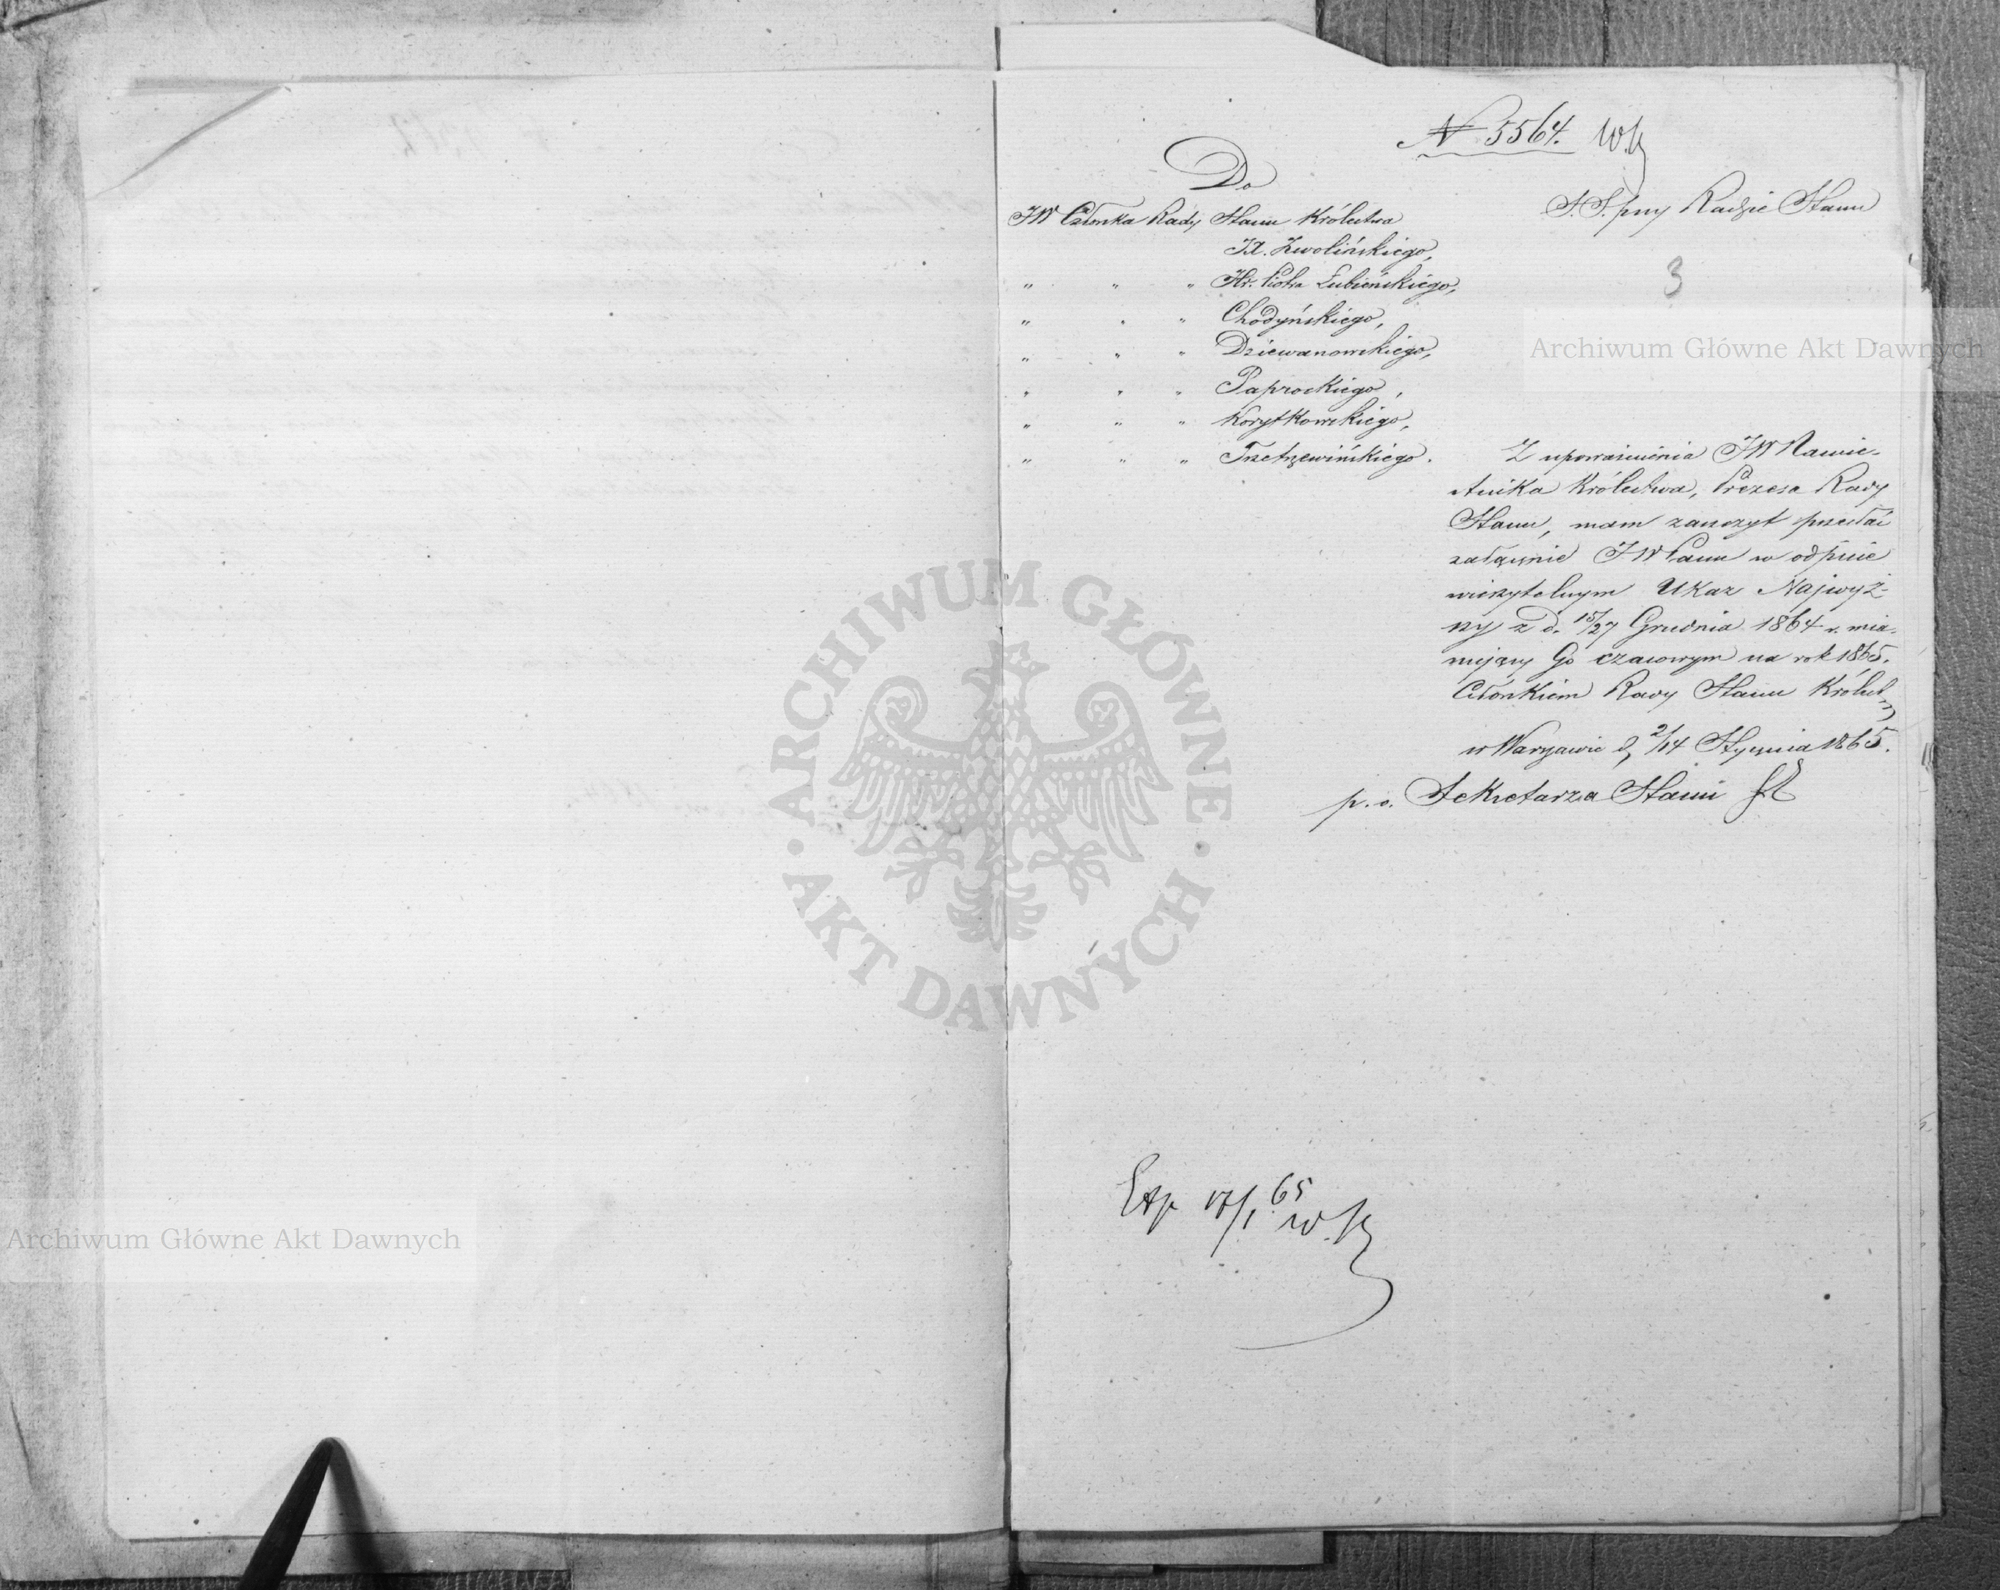 № 5564. W.K.
Do
JW Członka Rady Stanu Królestwa
S. S. przy Radzie Stanu
X. Zwolińskiego,
" " " Hr. Piotra Łubieńskiego,
3
" " " Chodyńskiego,
" " " Dziewanowskiego,
" " " Paprockiego,
" " " Korytkowskiego,
" " " Trzetrzewińskiego.
Z upoważnienia JW Namie-
stnika Królestwa, Prezesa Rady
Stanu, mam zaszczyt przesłać
załącznie JW Panu w odpisie
wierzytelnym Ukaz Najwyż-
szy z d. 15/27 Grudnia 1864 r. mia-
nujący Go czasowym na rok 1865.
Członkiem Rady Stanu Królest
w Warszawie d, 2/14 Stycznia 1865.
p. o. Sekretarza Stanu
Exp 17/1 65
W. K.
Archiwum Główne Akt Dawnych
ARCHIWUM GŁÓWNE
AKT DAWNYCH
Archiwum Główne Akt Dawnych